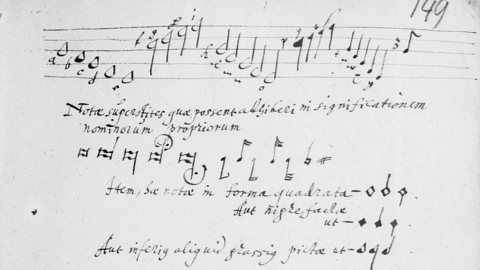 149
Notæ superstites quæ possent adhiberi in significationem
nominorum propriorum
Item, hæ notæ in forma quadrata
Aut nigrefactæ
ut
Aut inferius aliquid pictæ ut